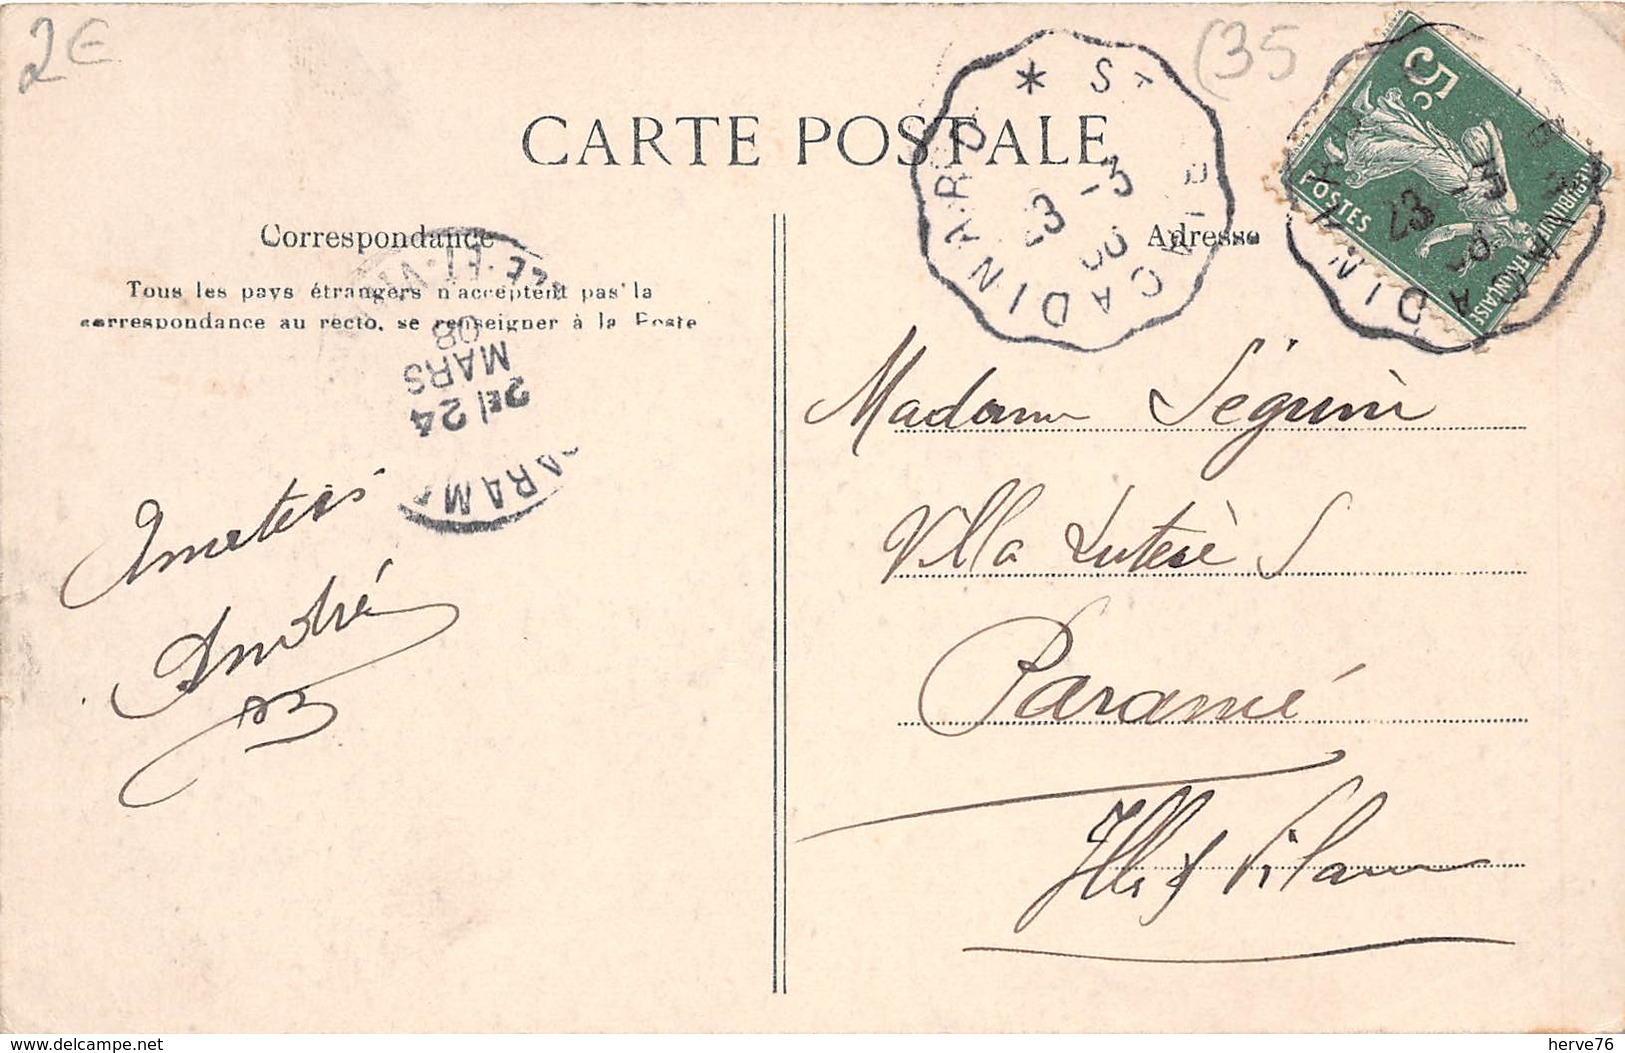 2€
(35
CARTE POSTALE
Correspondance
Adresse
Tous les pays étrangers n'acceptent pas la
correspondance au recto, se renseigner à la Poste
* ST BRIAC A DINARD
23 -3
08
5c
POSTES
REPUBLIQUE FRANÇAISE
ILLE-ET-VILAINE
2E/ 24
MARS
08
PARAMÉ
Madame Séguin
Villa Lutèce
Amitiés
Paramé
André
Ille & Vilaine
herve76